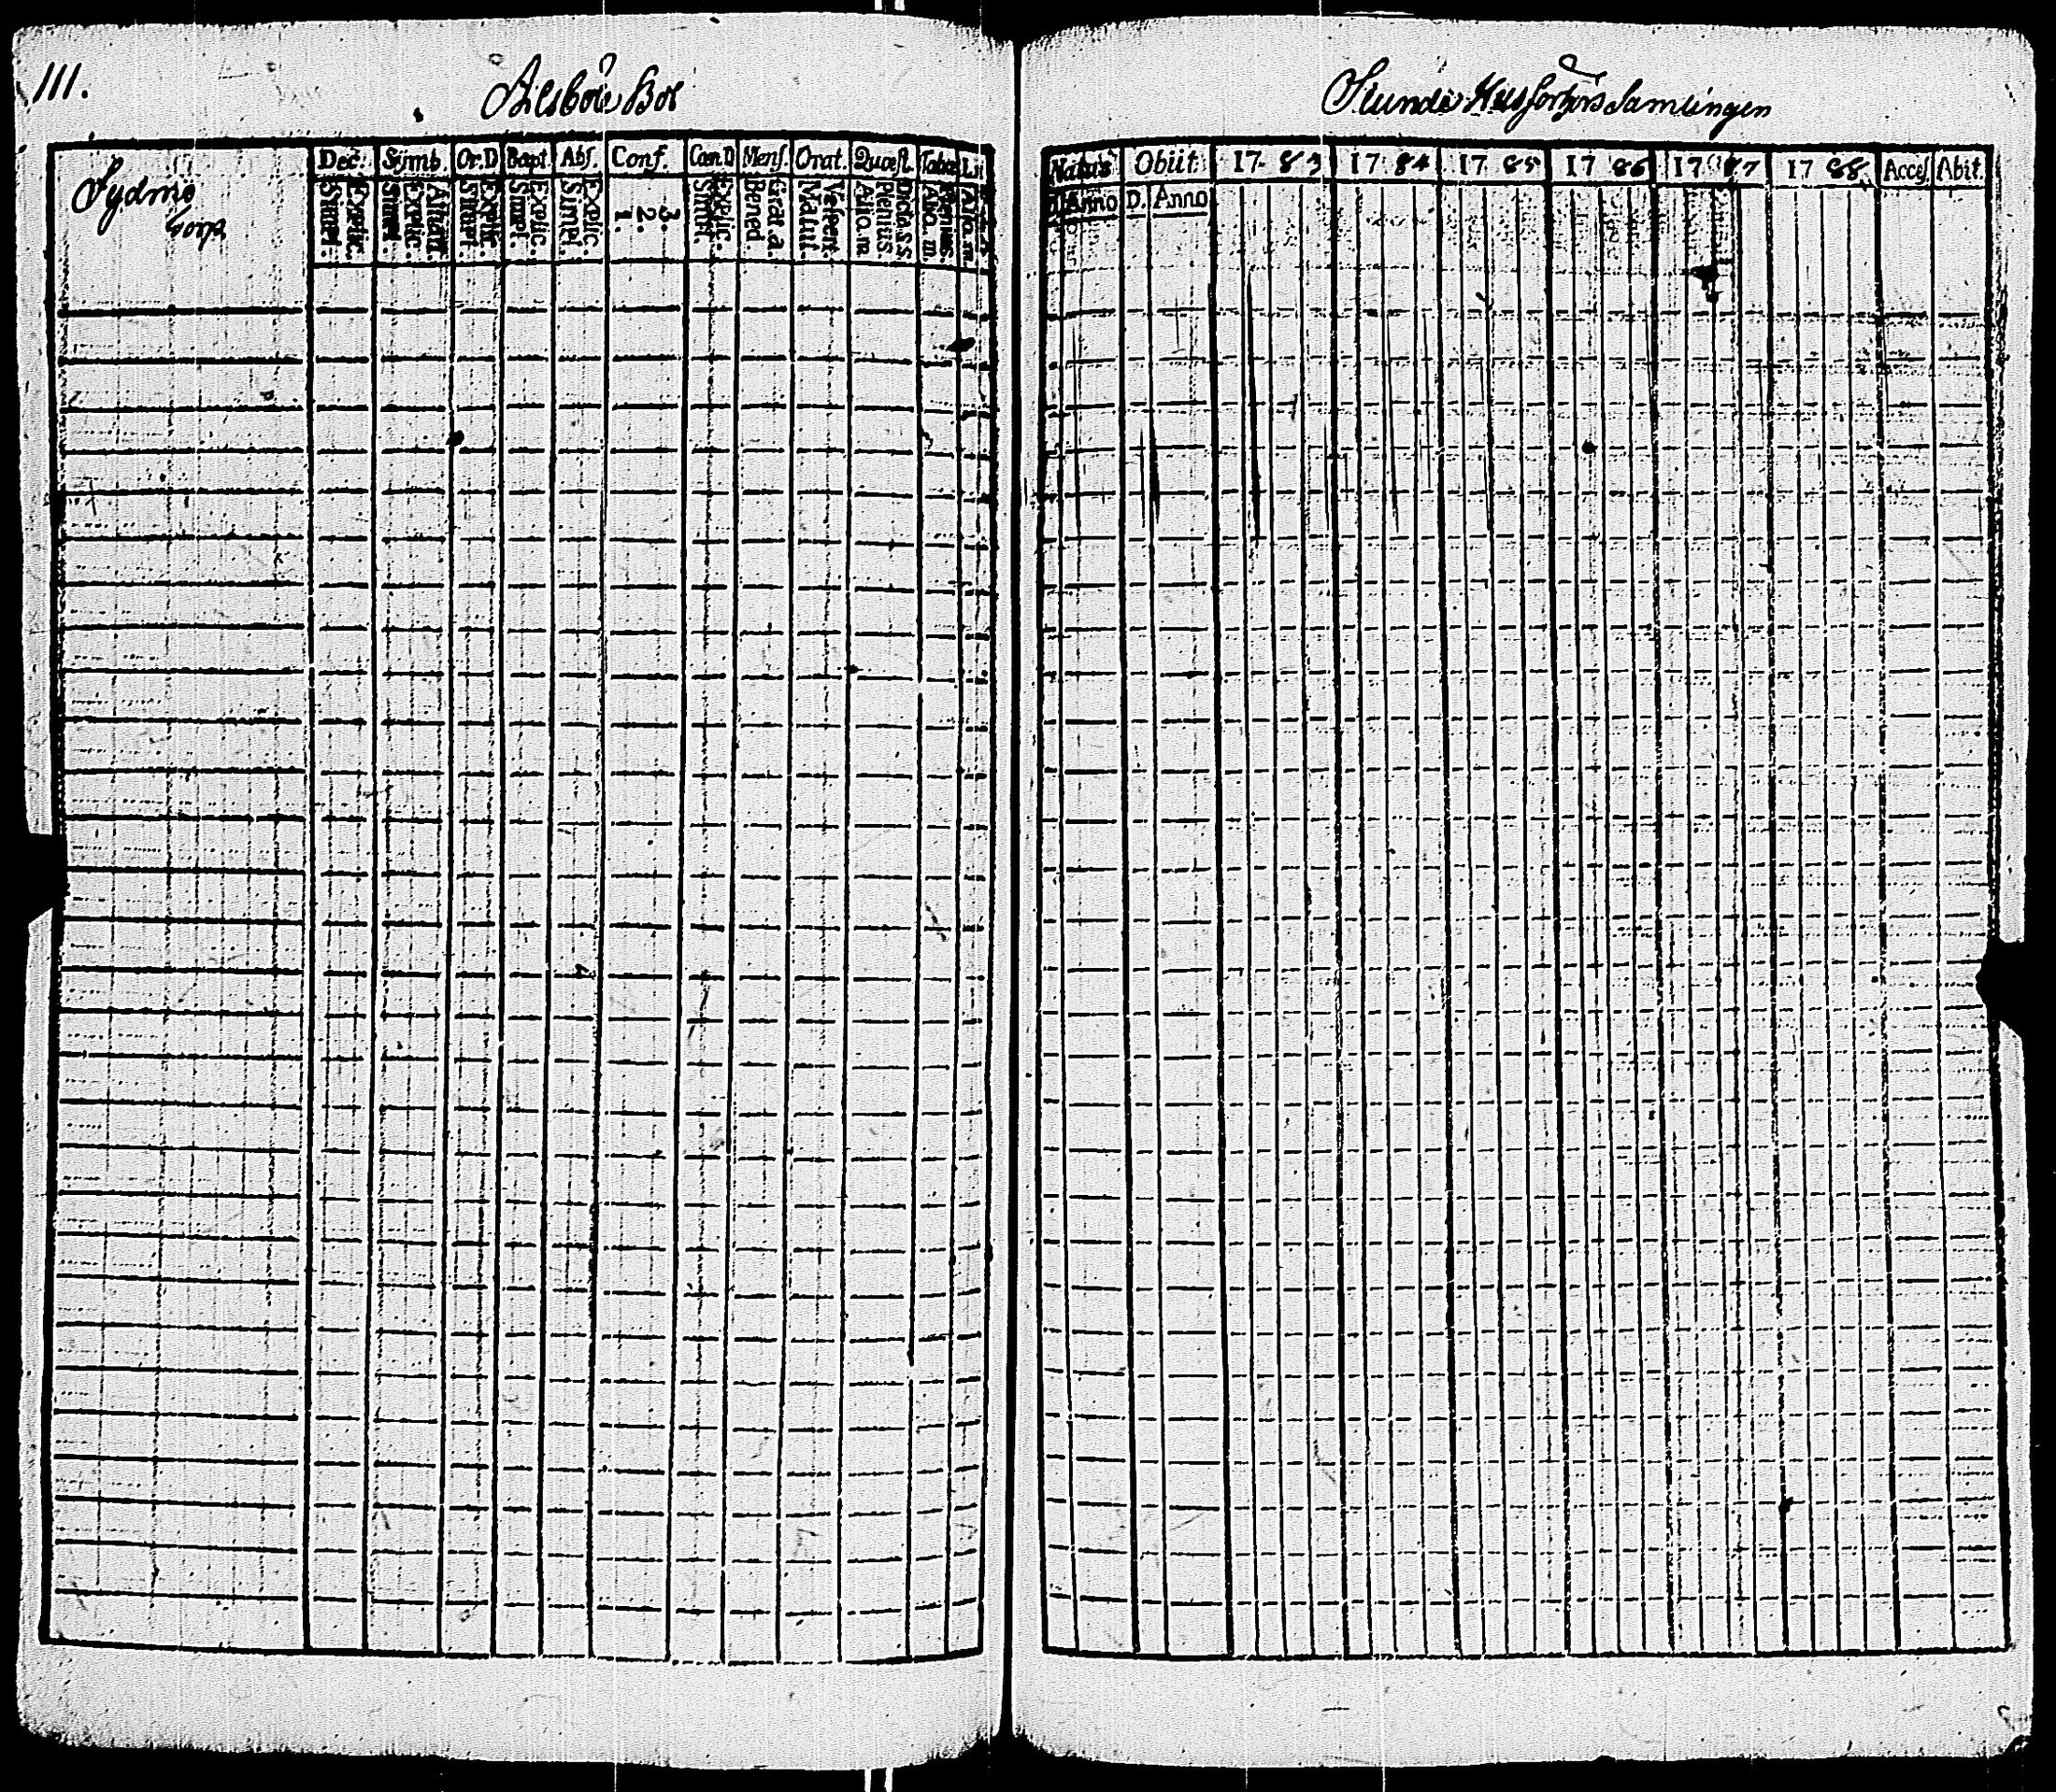 111.
Alsbo Bol
Slunda Husförhörs Samlingen
Sydmo
Torp
Dec. Symb. Or.D Bapt. Abs. Conf. Cœn.D Mens. Orat. Quæst. Tabu. Li
Simpl. Explic. Simpl. Explic. Athan. Simpl. Explic. Simpl. Explic. Simpl. Explic. 1. 2. 3. Simpl. Explic. Bened. Grat. a. Matut. Vespert. Aliq. m Plenius Dicta s.s. Aliq. m. Plenius Aliq. m.
Natus Obiit 17 83 17 84 17 85 17 86 17 87 17 88 Acces. Abit.
D. Anno D. Anno